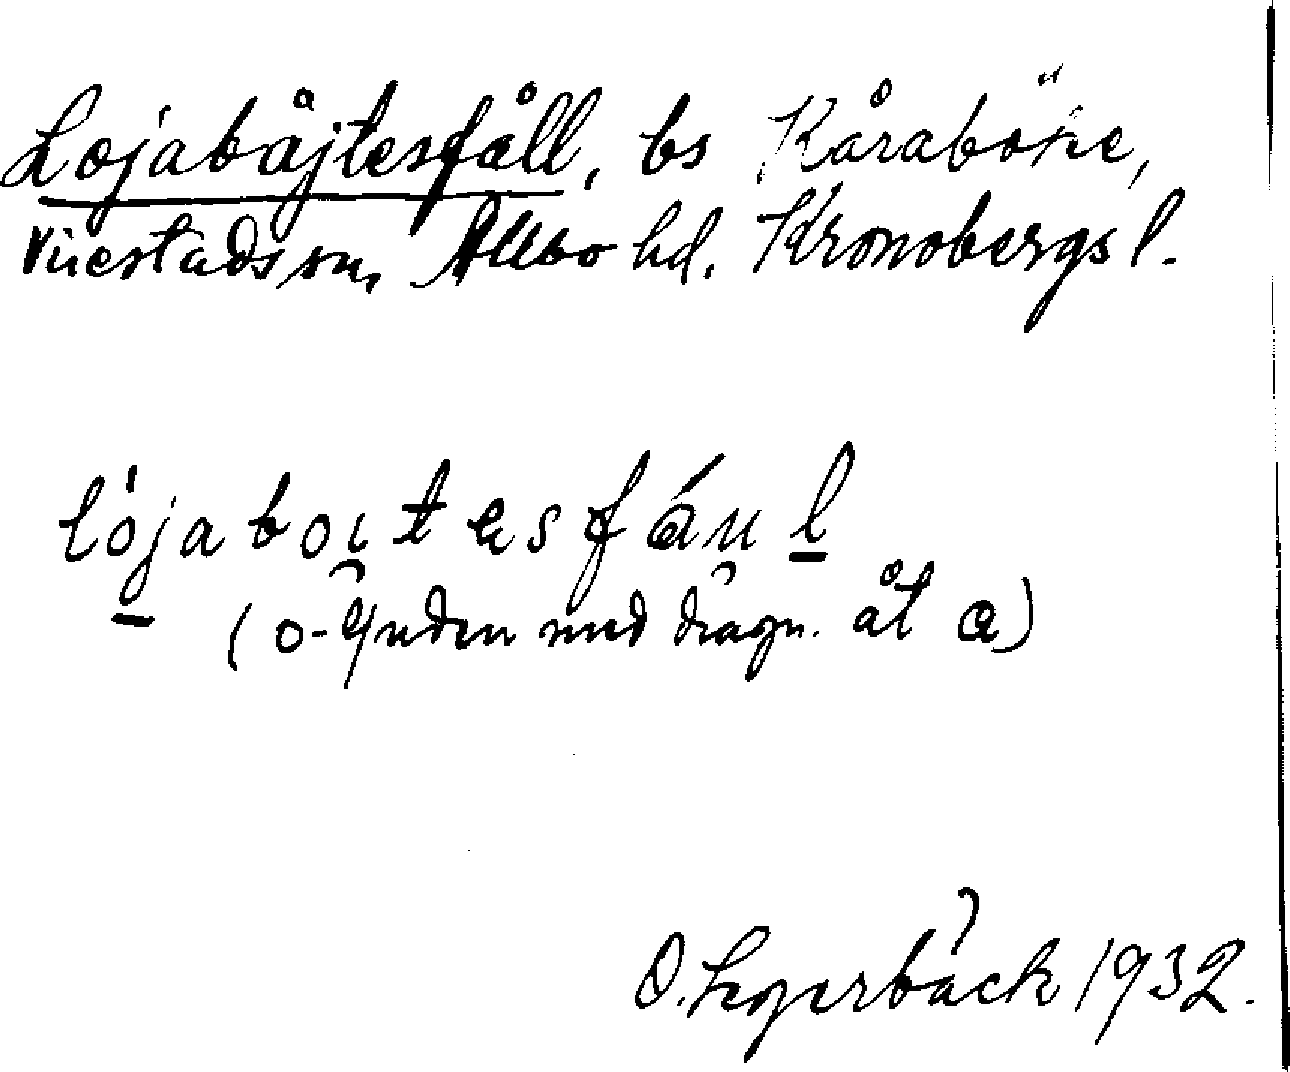 Lojabåjtesfåll, bs Kåraböke,
Virestads sn, Allbo hd, Kronobergs l.
lòjaboi̯tesfáu̯l
(o-ljuden med dragn. åt a)
O. Legerbäck 1932.